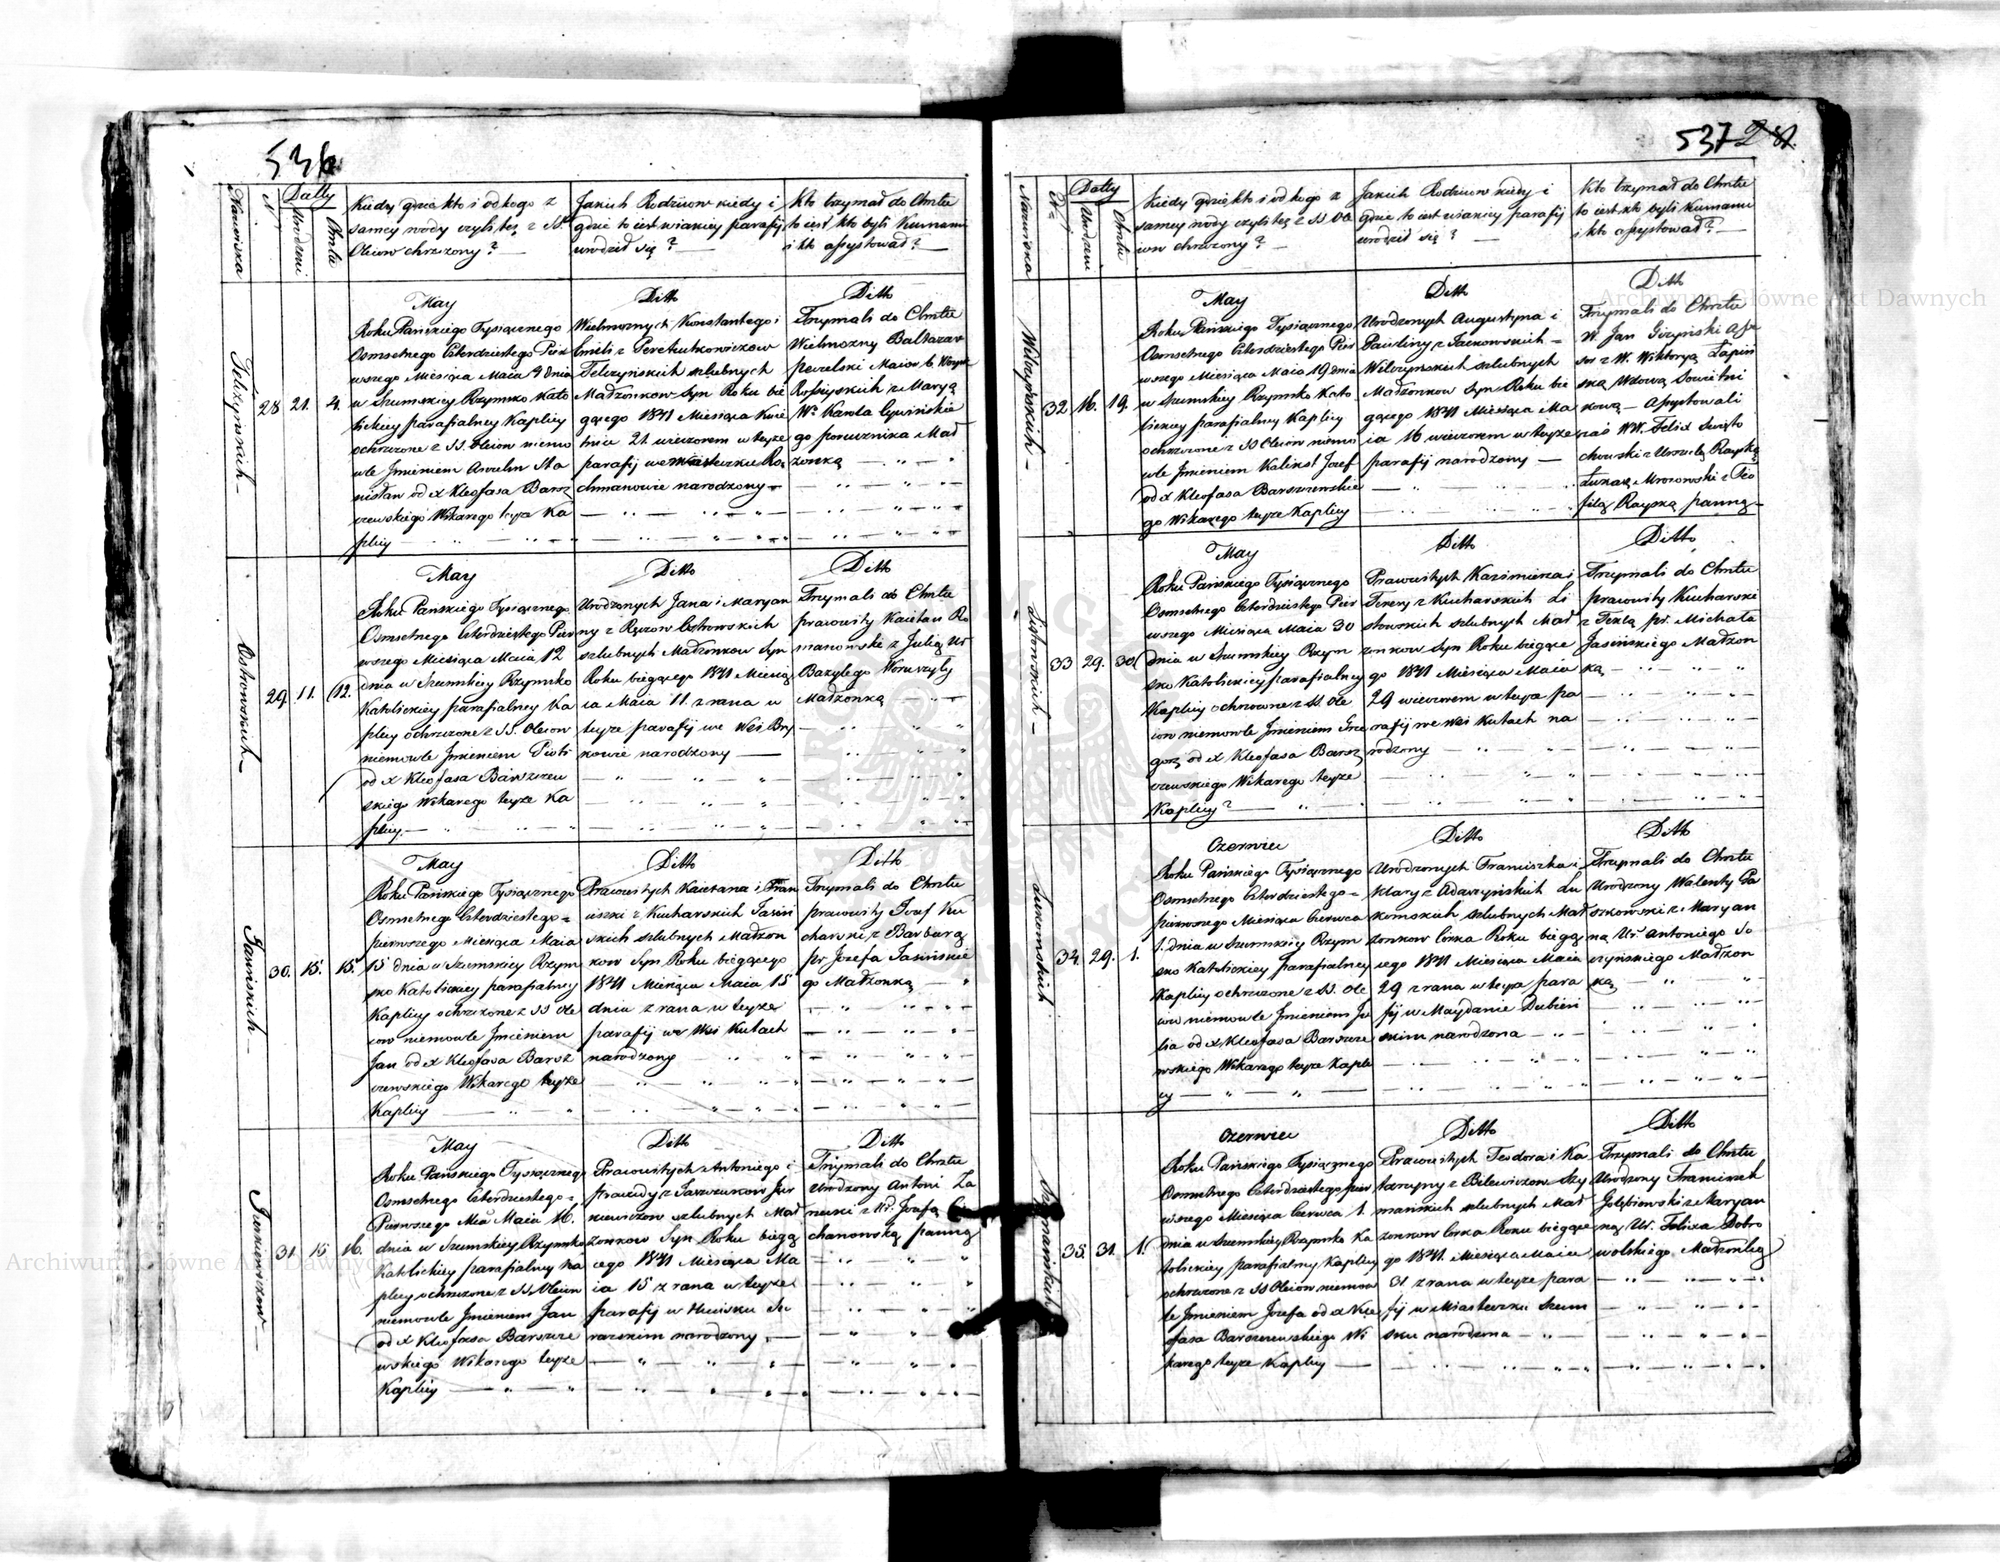 536
Nazwiska
N
Datty
Urodzeni
Chrztu
Kiedy gdzie kto i od kogo z
samey wody czyli też z SS.
Oleiow chrzczony? —
Jakich Rodzicow kiedy i
gdzie to iest wiakiey parafij
urodził się? —
Kto trzymał do Chrztu
to iest kto byli Kumami
i kto asystował? —
28
21.
4.
May
Roku Pańskiego Tysiącznego
Osmsetnego Czterdziestego Pier
wszego Miesiąca Maia 4 dnia
w Szumskiey Rzymsko Kato
lickiey parafialney Kaplicy
ochrzczone z SS. Oleiow niemo
wle Jmieniem Anzelm Sta
nisław od X Kleofasa Barsz
czewskiego Wikarego teyże Ka
plicy
Ditto
Wielmożnych Konstantego i
Emilii z Peretiatkowiczow
Felczyńskich szlubnych
Małżonkow syn Roku bie
gącego 1841 Miesiąca Kwie
tnia 21. wieczorem w teyże
parafij w miasteczku Ra
chmanowie narodzony —
Ditto
Trzymali do Chrztu
Wielmożny Baltazar
Maior b. Woysk
Rossyyskich z Maryą
Wo Karola Cywińskie
go porucznika Mał
żonką
29.
11.
12.
Ostrowskich —
May
Roku Pańskiego Tysiącznego
Osmsetnego Czterdziestego Pier
wszego Miesiąca Maia 12
dnia w Szumskiey Rzymsko
Katolickiey parafialney Ka
plicy ochrzczone z SS. Oleiow
niemowle Jmieniem Piotr
od X Kleofasa Barszczew
skiego Wikarego teyże Ka
plicy. —
Ditto
Urodzonych Jana i Maryan
ny z Ostrowskich
szlubnych Małżonkow syn
Roku biegącego 1841 Miesią
ca Maia 11. z rana w
teyże parafij we Wsi Bry
kowie narodzony —
Ditto
Trzymali do Chrztu
pracowity Kaietan Ro
manowski z Julią Ur
Bazylego Woruczyły
Małżonką
30.
15.
15.
Jasińskich —
May
Roku Pańskiego Tysiącznego
Osmsetnego Czterdziestego =
pierwszego Miesiąca Maia
15 dnia w Szumskiey Rzym
sko Katolickiey parafialney
Kaplicy ochrzczone z SS Ole
iow niemowle Jmieniem
Jan od X Kleofasa Barsz
czewskiego Wikarego teyże
Kaplicy
Ditto
Pracowitych Kaietana i Fran
ciszki z Kucharskich Jasiń
skich szlubnych Małżon
kow Syn Roku biegącego
1841 Miesiąca Maia 15
dnia z rana w teyże
parafij we Wsi Kutach
narodzony
Ditto
Trzymali do Chrztu
pracowity Jozef Ku
charski z Barbarą
pr Jozefa Jasińskie
go Małżonką
31
15
16.
Jurkiewiczow —
May
Roku Pańskiego Tysiącznego
Osmsetnego Czterdziestego =
Pierwszego Mca Maia 16.
dnia w Szumskiey Rzymsko
Katolickiey parafialney Ka
plicy ochrzczone z SS. Oleiow
niemowle Jmieniem Jan
od X Kleofasa Barszcze
wskiego Wikarego teyże
Kaplicy
Ditto
Pracowitych Antoniego i
z Jur
kiewiczow szlubnych Mał
żonkow Syn Roku biegą
cego 1841 Miesiąca Ma
ia 15 z rana w teyże
parafij w Hucisku Su
razskim narodzony. —
Ditto
Trzymali do Chrztu
Urodzony Antoni
z Ur. Jozefą
chanowską panną
537
Nazwiska
Datty
Urodzeni
Chrztu
Kiedy gdzie kto i od kogo z
samey wody czyli też z SS. Ole
iow chrzczony? —
Jakich Rodzicow kiedy i
gdzie to iest wiakiey parafij
urodził się? —
Kto trzymał do Chrztu
to iest kto byli Kumami
i kto asystował? —
32
16.
19.
Wilczyńskich —
May
Roku Pańskiego Tysiącznego
Osmsetnego Czterdziestego Pier
wszego Miesiąca Maia 19 dnia
w Szumskiey Rzymsko Kato
lickiey parafialney Kaplicy
ochrzczone z SS Oleiow niemo
wle Jmieniem Kalikst Jozef
od X Kleofasa Barszczewskie
go Wikarego teyże Kaplicy
Ditto
Urodzonych Augustyna i
Pauliny z =
Wilczyńskich szlubnych
Małżonkow syn Roku bie
gącego 1841 Miesiąca Ma
ia 16 wieczorem w teyże
parafij narodzony —
Ditto
Trzymali do Chrztu
W. Jan Giżyński
z W. Wiktoryą Łapiń
ską Wdową Sowietni
kową — Asystowali
zaś WW. Felix Święto
chowski z Urszulą Rayską
Łukasz Mrozowski z Teo
filą Rayską panną —
33
29.
30
Listowskich —
May
Roku Pańskiego Tysiącznego
Osmsetnego Czterdziestego Pier
wszego Miesiąca Maia 30
dnia w Szumskiey Rzym
sko Katolickiey parafialney
Kaplicy ochrzczone z SS. Ole
iow niemowle Jmieniem Grze
gorz od X Kleofasa Barsz
czewskiego Wikarego teyże
Kaplicy
Ditto
Pracowitych Kazimierza i
Teresy z Kucharskich Li
stowskich szlubnych Mał
żonkow syn Roku biegące
go 1841 Miesiąca Maia
29 wieczorem w teyże pa
rafij we Wsi Kutach na
rodzony
Ditto
Trzymali do Chrztu
pracowity Kucharski
z Teklą pr. Michała
Jasińskiego Małżon
ką
34.
29.
1.
Łukomskich
Czerwiec
Roku Pańskiego Tysiącznego
Osmsetnego Czterdziestego =
pierwszego Miesiąca Czerwca
1. dnia w Szumskiey Rzym
sko Katolickiey Parafialney
Kaplicy ochrzczone z SS. Ole
iow niemowle Jmieniem Ju
lia od X Kleofasa Barszcze
wskiego Wikarego teyże Kapli
cy
Ditto
Urodzonych Franciszka i
Klary z Adaszyńskich Łu
komskich szlubnych Mał
żonkow Corka Roku biegą
cego 1841 Miesiąca Maia
29 z rana w teyże para
fij w Maydanie Dubien
skim narodzona
Ditto
Trzymali do Chrztu
Urodzony Walenty Pa
szkowski z Maryan
ną Ur. Antoniego So
czyńskiego Małżon
ką
35.
31.
1.
Szymańskich
Czerwiec
Roku Pańskiego Tysiącznego
Osmsetnego Czterdziestego pier
wszego Miesiąca Czerwca 1.
dnia w Szumskiey Rzymsko Ka
tolickiey parafialney Kaplicy
ochrzczone z SS Oleiow niemow
le Jmieniem Jozefa od X Kle
ofasa Barszczewskiego Wi
karego teyże Kaplicy —
Ditto
Pracowitych Teodora i Ka
tarzyny z Bilewiczow Szy
mańskich szlubnych Mał
żonkow Corka Roku biegące
go 1841. Miesiąca Maia
31 z rana w teyże para
fij w Miasteczku Szum
sku narodzona
Ditto
Trzymali do Chrztu
Urodzony Franciszek
Gołębiowski z Maryan
ną Ur. Felixa Dobro
wolskiego Małżonką
Archiwum Główne Akt Dawnych
Archiwum Główne Akt Dawnych